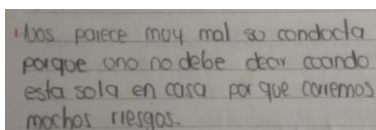 Nos parece muy mal su conducta
porque uno no debe decir cuando
esta sola en casa por que corremos
muchos riesgos.